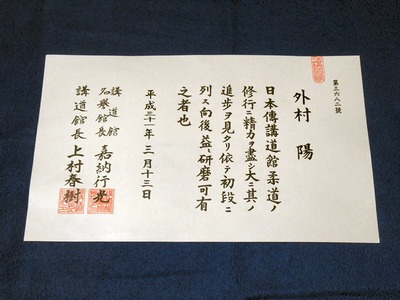 第三六八三號
外村 陽
日本傳講道館柔道ノ
修行ニ精力ヲ盡シ大ニ其ノ
進歩ヲ見タリ依テ初段ニ
列ス向後益〻研磨可有
之者也
平成三十一年三月十三日
講道館
名誉館長 嘉納行光
講道館長 上村春樹